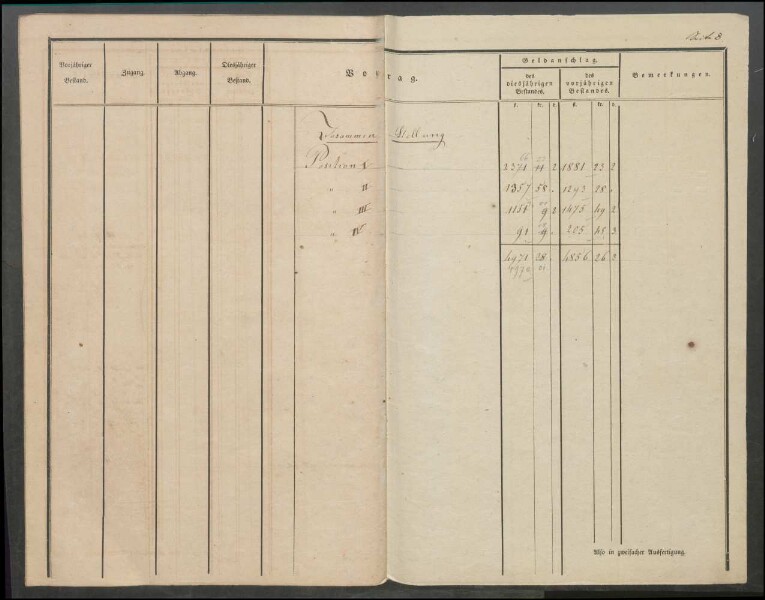 Seite 8.
Vorjähriger Bestand. Zugang. Abgang. Diesjähriger Bestand. Vortrag. Geldanschlag. Bemerkungen.
des diesjährigen Bestandes. des vorjährigen Bestandes.
Zusammen Stellung
Position I 2371 2 1881 23 2
" II 1357 58 . 1293 28 .
" III 1151 9 2 1475 49 2
" IV 91 9 . 205 45 3
4971 28 . 4856 26 3
Also in zweifacher Ausfertigung.